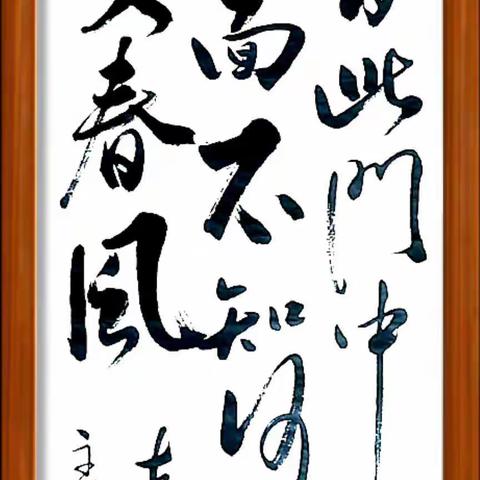 日此門中
面不知何
春風